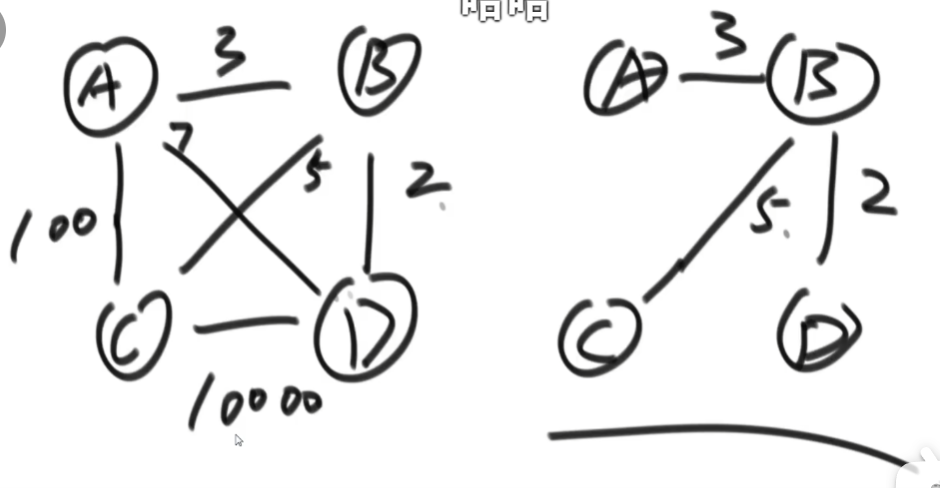 哈哈
A 3 B
7
5
100
2
C D
10000
A 3 B
5
2
C D